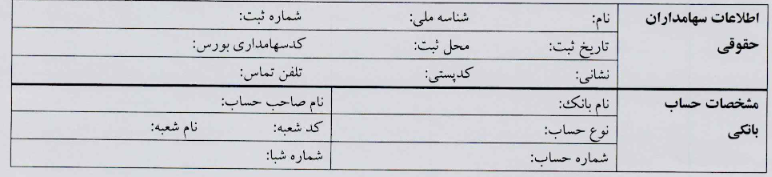 اطلاعات سهامداران حقوقی
نام: شناسه ملی: شماره ثبت:
تاریخ ثبت: محل ثبت: کدسهامداری بورس:
نشانی: کدپستی: تلفن تماس:
مشخصات حساب بانکی
نام بانک: نام صاحب حساب:
نوع حساب: کد شعبه: نام شعبه:
شماره حساب: شماره شبا: